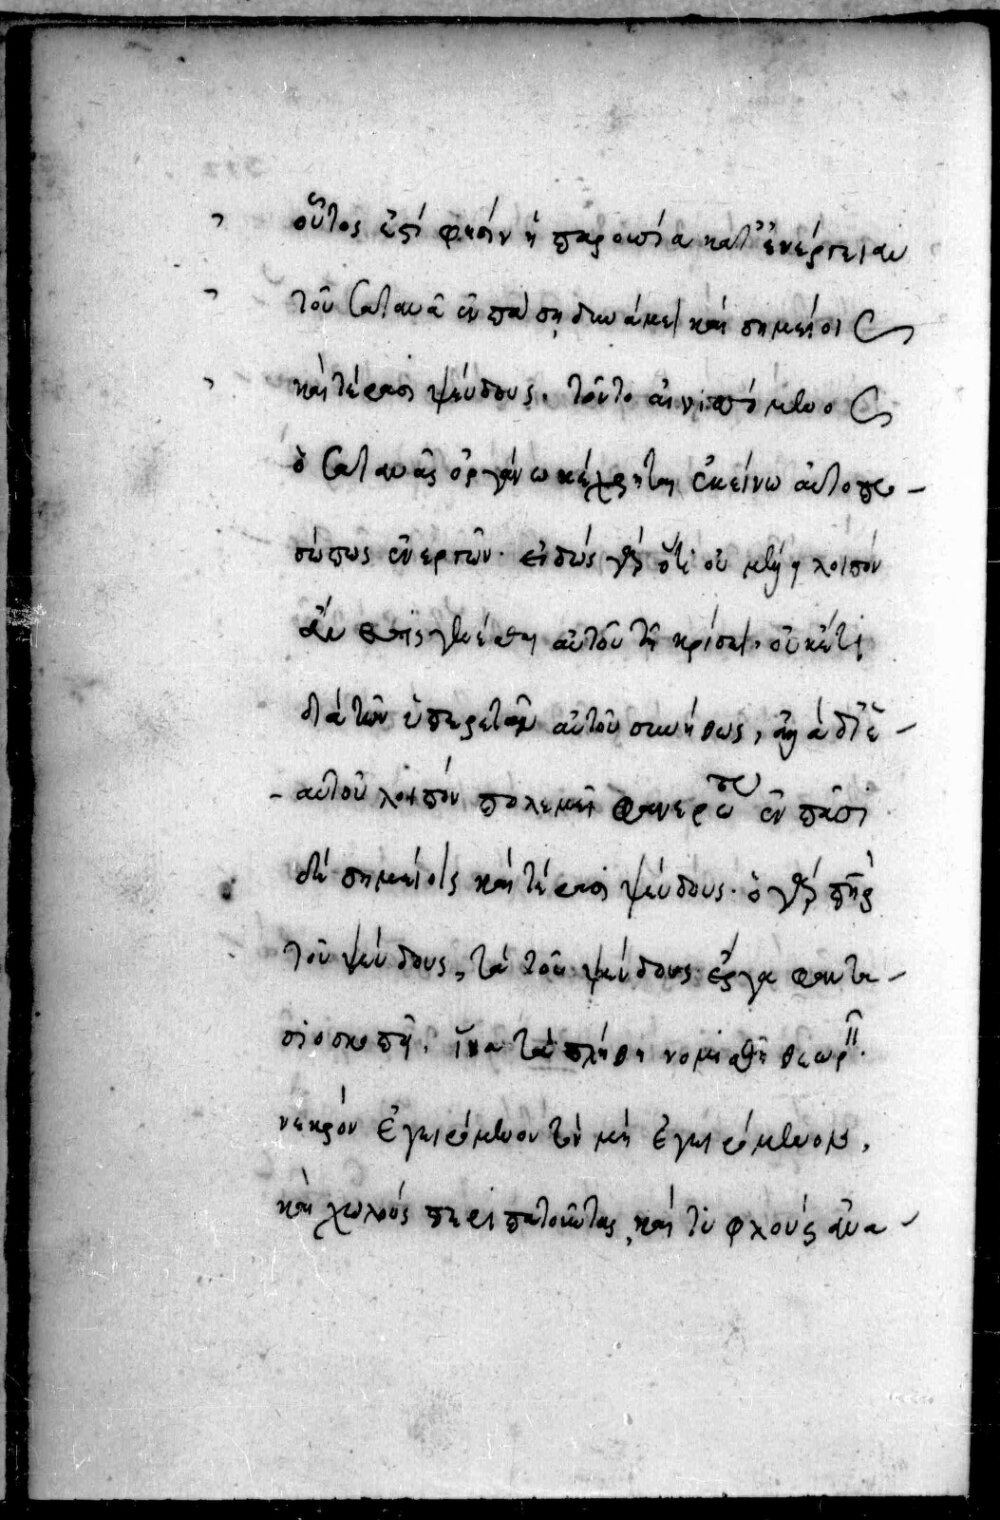 οὗτος ἐστί φησίν ἡ παρουσία κατ' ἐνέργειαν
τοῦ Σατανᾶ ἐν πάσῃ δυνάμει καὶ σημείοις
καὶ τέρασι ψεύδους. τοῦτο αἰνιττόμενος
ὁ Σατανᾶς ὀργάνω κέχρηται ἐκείνω αὐτοπρο-
σώπως ἐνεργῶν. εἰδώς γὰρ ὅτι οὐ μὴ λοιπόν
αὐτοῦ τῇ κρίσει, οὐκέτι
διὰ τῶν ὑπηρετῶν αὐτοῦ συνήθως, ἀλλὰ δι' ἑ-
αυτοῦ λοιπόν πολεμεῖ φανερῶς ἐν πᾶσι
δὲ σημείοις καὶ τέρασι ψεύδους. ὁ γὰρ πατὴρ
τοῦ ψεύδους, τὰ τοῦ ψεύδους ἔργα φαντα-
σιοσκοπεῖ. ἵνα τὰ πλήθη νομισθῇ θεωρεῖν
νεκρόν ἐγειρόμενον τὸν μὴ ἐγειρόμενον,
καὶ χωλούς περιπατοῦντας, καὶ τυφλούς ἀνα-